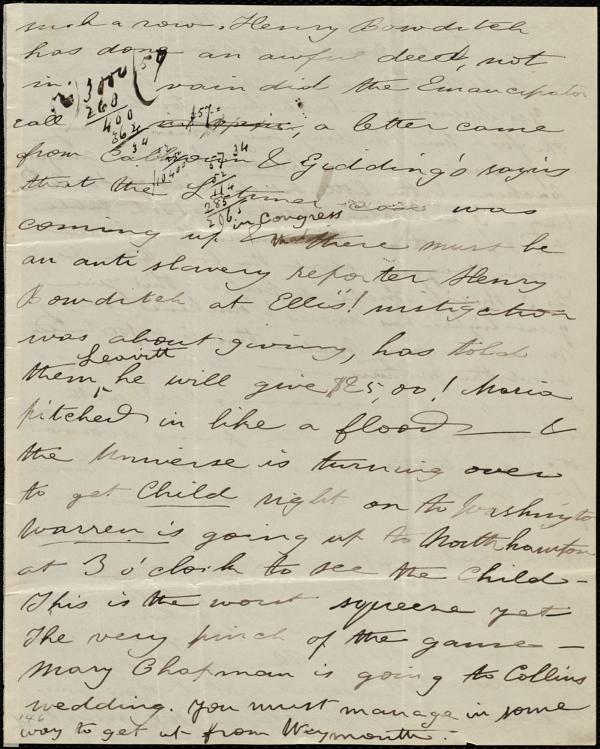 such a row. Henry Bowditch
has done an awful deed, not
in vain did the Emancipator
call, a letter came
from & Giddings sayis
that the Latimer case was
coming up in Congress & there must be
an anti slavery reporter Henry
Bowditch at Ellis'! instigation
was about giving, has told
them Leavitt he will give $25,00! Maria
pitched in like a flood — &
the Universe is turning over
to get Child right on to Washington
Warren is going up to Northhamton
at 3 o'clock to see the Child -
This is the worst squeeze yet
The very pinch of the game —
Mary Chapman is going to Collins
wedding. You must manage in some
way to get it from Weymouth.
3000
260
400
364
34
57
52
114
285
146